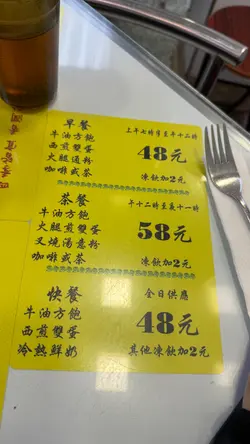 早餐
牛油方飽
西煎雙蛋
火腿通粉
咖啡或茶
時二十年正至時七年上
48元
凍飲加2元
茶餐
牛油方飽
火腿煎雙蛋
叉燒湯意粉
咖啡或茶
時一十夜至年二十時
58元
凍飲加2元
快餐
牛油方飽
西煎雙蛋
冷熱鮮奶
全日供應
48元
其他凍飲加2元